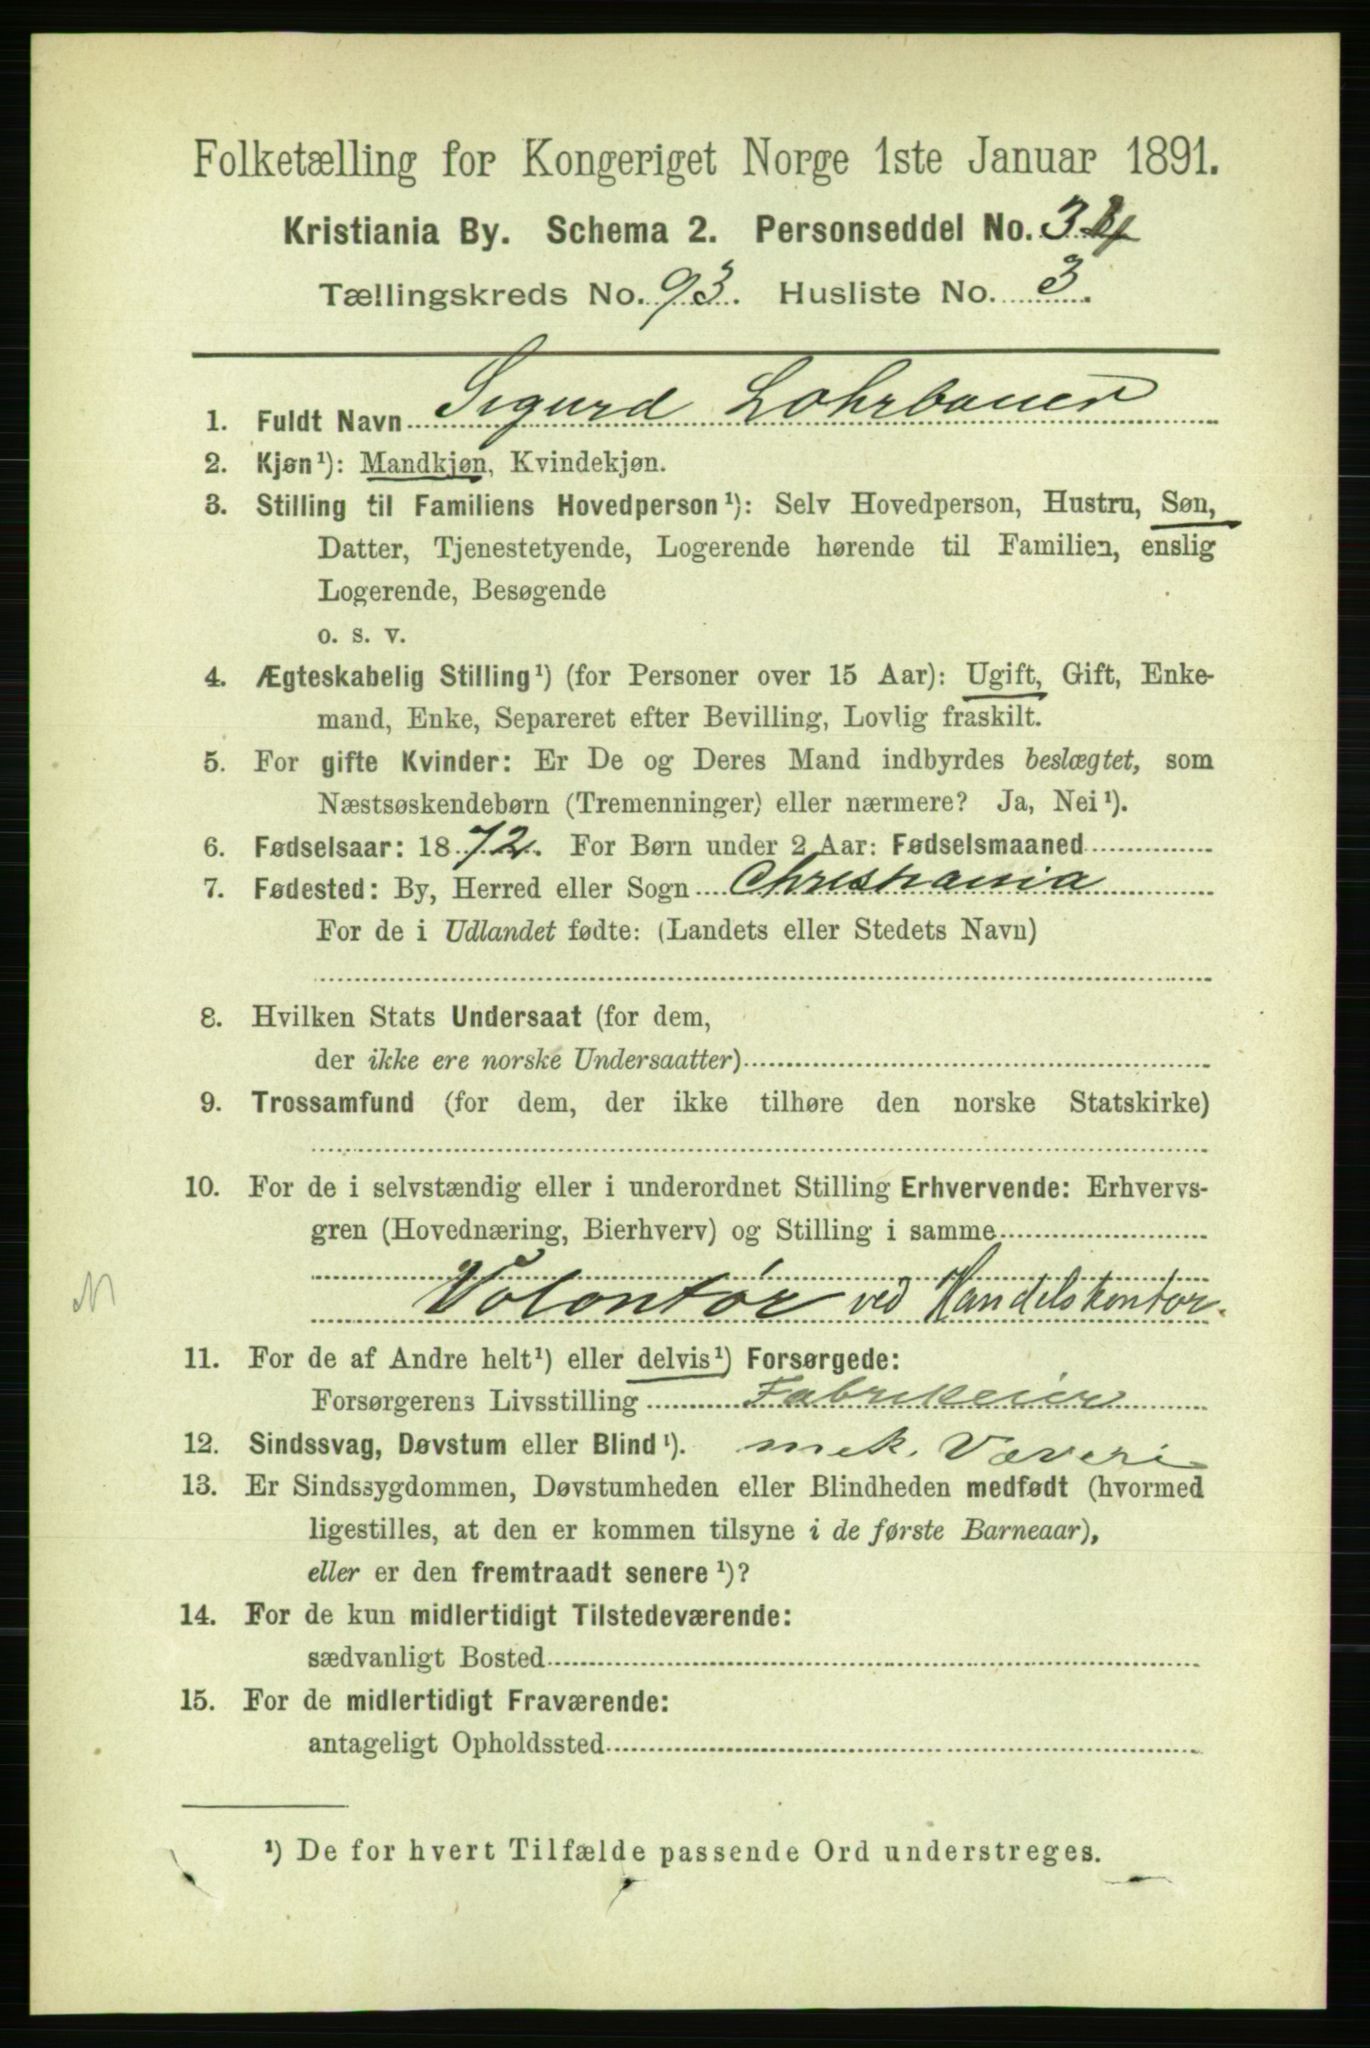 Folketælling for Kongeriget Norge 1ste Januar 1891.
Kristiania By. Schema 2. Personseddel No. 34
Tællingskreds No. 93. Husliste No. 3.
1. Fuldt Navn Sigurd Lohrbauer
2. Kjøn¹): Mandkjøn, Kvindekjøn.
3. Stilling til Familiens Hovedperson¹): Selv Hovedperson, Hustru, Søn,
Datter, Tjenestetyende, Logerende hørende til Familien, enslig
Logerende, Besøgende
o. s. v.
4. Ægteskabelig Stilling¹) (for Personer over 15 Aar): Ugift, Gift, Enke-
mand, Enke, Separeret efter Bevilling, Lovlig fraskilt.
5. For gifte Kvinder: Er De og Deres Mand indbyrdes beslægtet, som
Næstsøskendebørn (Tremenninger) eller nærmere? Ja, Nei¹).
6. Fødselsaar: 1872. For Børn under 2 Aar: Fødselsmaaned
7. Fødested: By, Herred eller Sogn Christiania
For de i Udlandet fødte: (Landets eller Stedets Navn)
8. Hvilken Stats Undersaat (for dem,
der ikke ere norske Undersaatter)
9. Trossamfund (for dem, der ikke tilhøre den norske Statskirke)
10. For de i selvstændig eller i underordnet Stilling Erhvervende: Erhvervs-
gren (Hovednæring, Bierhverv) og Stilling i samme
Volontør ved Handelskontor.
M
11. For de af Andre helt¹) eller delvis¹) Forsørgede:
Forsørgerens Livsstilling Fabrikeier
12. Sindssvag, Døvstum eller Blind¹). mek. Væveri
13. Er Sindssygdommen, Døvstumheden eller Blindheden medfødt (hvormed
ligestilles, at den er kommen tilsyne i de første Barneaar),
eller er den fremtraadt senere¹)?
14. For de kun midlertidigt Tilstedeværende:
sædvanligt Bosted
15. For de midlertidigt Fraværende:
antageligt Opholdssted
¹) De for hvert Tilfælde passende Ord understreges.